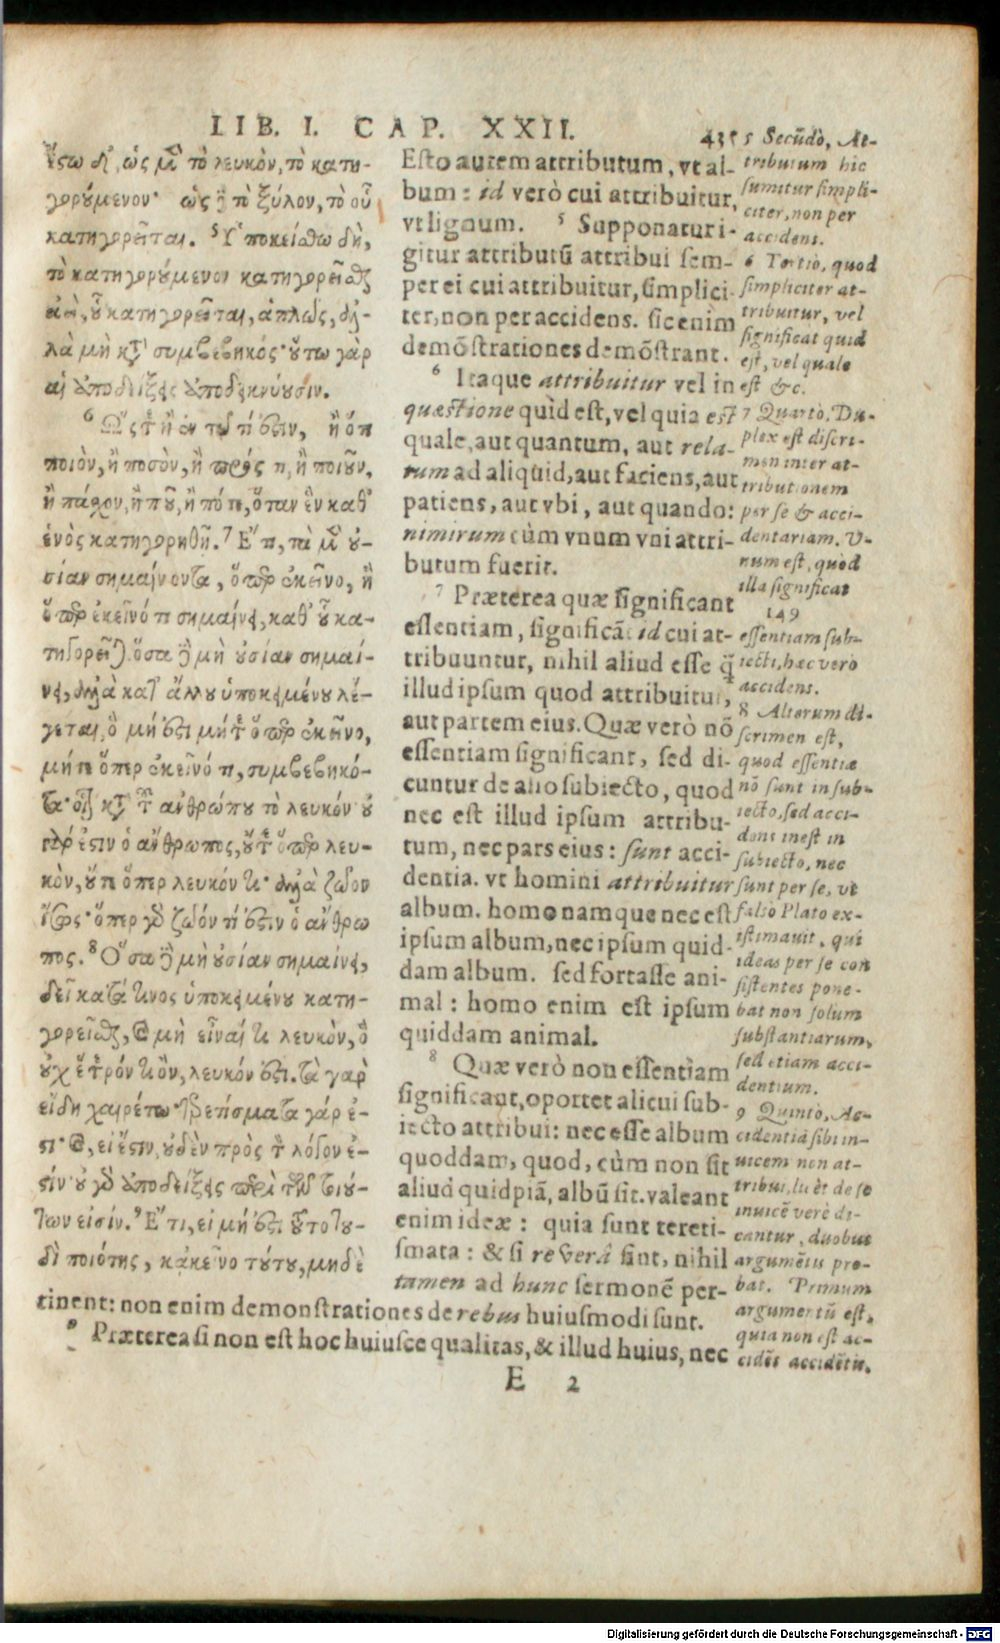 LIB. I. CAP. XXII. 435
Ἔστω δὴ, ὡς μὲν τὸ λευκὸν, τὸ κατη-
γορούμενον· ὡς δὲ τὸ ξύλον, τὸ οὗ
κατηγορεῖται. ⁵Ὑποκείσθω δὴ,
τὸ κατηγορούμενον κατηγορεῖσθαι
ἀεὶ, οὗ κατηγορεῖται, ἁπλῶς, ἀλ-
λὰ μὴ κτ̃ συμβεβηκός· οὕτω γὰρ
αἱ ἀποδείξεις ἀποδεικνύουσιν.
⁶ Ὥστε ἢ ἐν τῷ τί ἐστιν, ἢ ὅτι
ποιὸν, ἢ ποσὸν, ἢ πρός τι, ἢ ποιοῦν,
ἢ πάσχον, ἢ ποῦ, ἢ πότε, ὅταν ἓν καθ᾽
ἑνὸς κατηγορηθῇ. ⁷ Ἔτι, τὰ μὲν οὐ-
σίαν σημαίνοντα, ὅπερ ἐκεῖνο, ἢ
ὅπερ ἐκεῖνό τι σημαίνει, καθ᾽ οὗ κα-
τηγορεῖται· ὅσα δὲ μὴ οὐσίαν σημαί-
νει, ἀλλὰ κατ᾽ ἄλλου ὑποκειμένου λέ-
γεται, ὃ μή ἐστι μήτε ὅπερ ἐκεῖνο,
μήτε ὅπερ ἐκεῖνό τι, συμβεβηκό-
τα· οἷον κτ̃ τοῦ ἀνθρώπου τὸ λευκόν· οὐ
γάρ ἐστιν ὁ ἄνθρωπος, οὔτε ὅπερ λευ-
κὸν, οὔτε ὅπερ λευκόν τι· ἀλλὰ ζῶον
ἴσως· ὅπερ γὰρ ζῶόν τί ἐστιν ὁ ἄνθρω
πος. ⁸ Ὅσα δὲ μὴ οὐσίαν σημαίνει,
δεῖ κατά τινος ὑποκειμένου κατη-
γορεῖσθαι, καὶ μὴ εἶναί τι λευκὸν, ὃ
οὐχ ἕτερόν τι ὂν, λευκόν ἐστι. τὰ γὰρ
εἴδη χαιρέτω· τερετίσματα γάρ ἐ-
στι· καὶ, εἰ ἔστιν, οὐδὲν πρὸς τὸν λόγον ἐ-
στίν· αἱ γὰρ ἀποδείξεις περὶ τῶν τοιού-
των εἰσίν. ⁹ Ἔτι, εἰ μή ἐστι τοῦτο του-
δὶ ποιότης, κἀκεῖνο τούτου, μηδὲ
Esto autem attributum, vt al-
bum: id verò cui attribuitur,
vt lignum. ⁵ Supponatur i-
gitur attributū attribui sem-
per ei cui attribuitur, simplici-
ter, non per accidens. sic enim
demōstrationes demōstrant.
⁶ Itaque attribuitur vel in
quæstione quid est, vel quia est
quale, aut quantum, aut rela-
tum ad aliquid, aut faciens, aut
patiens, aut vbi, aut quando:
nimirum cùm vnum vni attri-
butum fuerit.
⁷ Præterea quæ significant
essentiam, significāt id cui at-
tribuuntur, nihil aliud esse q̃
illud ipsum quod attribuitur,
aut partem eius. Quæ verò nō
essentiam significant, sed di-
cuntur de alio subiecto, quod
nec est illud ipsum attribu-
tum, nec pars eius: sunt acci-
dentia. vt homini attribuitur
album. homo namque nec est
ipsum album, nec ipsum quid-
dam album. sed fortasse ani-
mal: homo enim est ipsum
quiddam animal.
⁸ Quæ verò non essentiam
significant, oportet alicui sub-
iecto attribui: nec esse album
quoddam, quod, cùm non sit
aliud quidpiā, albū sit. valeant
enim ideæ: quia sunt tereti-
smata: & si reverâ sint, nihil
tamen ad hunc sermonē per-
tinent: non enim demonstrationes de rebus huiusmodi sunt.
⁹ Præterea si non est hoc huiusce qualitas, & illud huius, nec
E 2
5 Secūdò, At-
tributum hic
sumitur simpli-
citer, non per
accidens.
6 Tertiò, quod
simpliciter at-
tribuitur, vel
significat quid
est, vel quale
est &c.
7 Quartò, Du-
plex est discri-
men inter at-
tributionem
per se & acci-
dentariam. V-
num est, quòd
illa significat
149
essentiam sub-
iecti, hæc verò
accidens.
8 Alterum di-
scrimen est,
quod essentiæ
nō sunt in sub-
iecto, sed acci-
dens inest in
subiecto, nec
sunt per se, vt
falsò Plato ex-
istimauit, qui
ideas per se con
sistentes pone-
bat non solum
substantiarum,
sed etiam acci-
dentium.
9 Quintò, Ac-
cidentia sibi in-
uicem non at-
tribui, licèt de se
inuicē verè di-
cantur, duobus
argumētis pro-
bat. Primum
argumentū est,
quia non est ac-
cidēs accidētis.
Digitalisierung gefördert durch die Deutsche Forschungsgemeinschaft - DFG